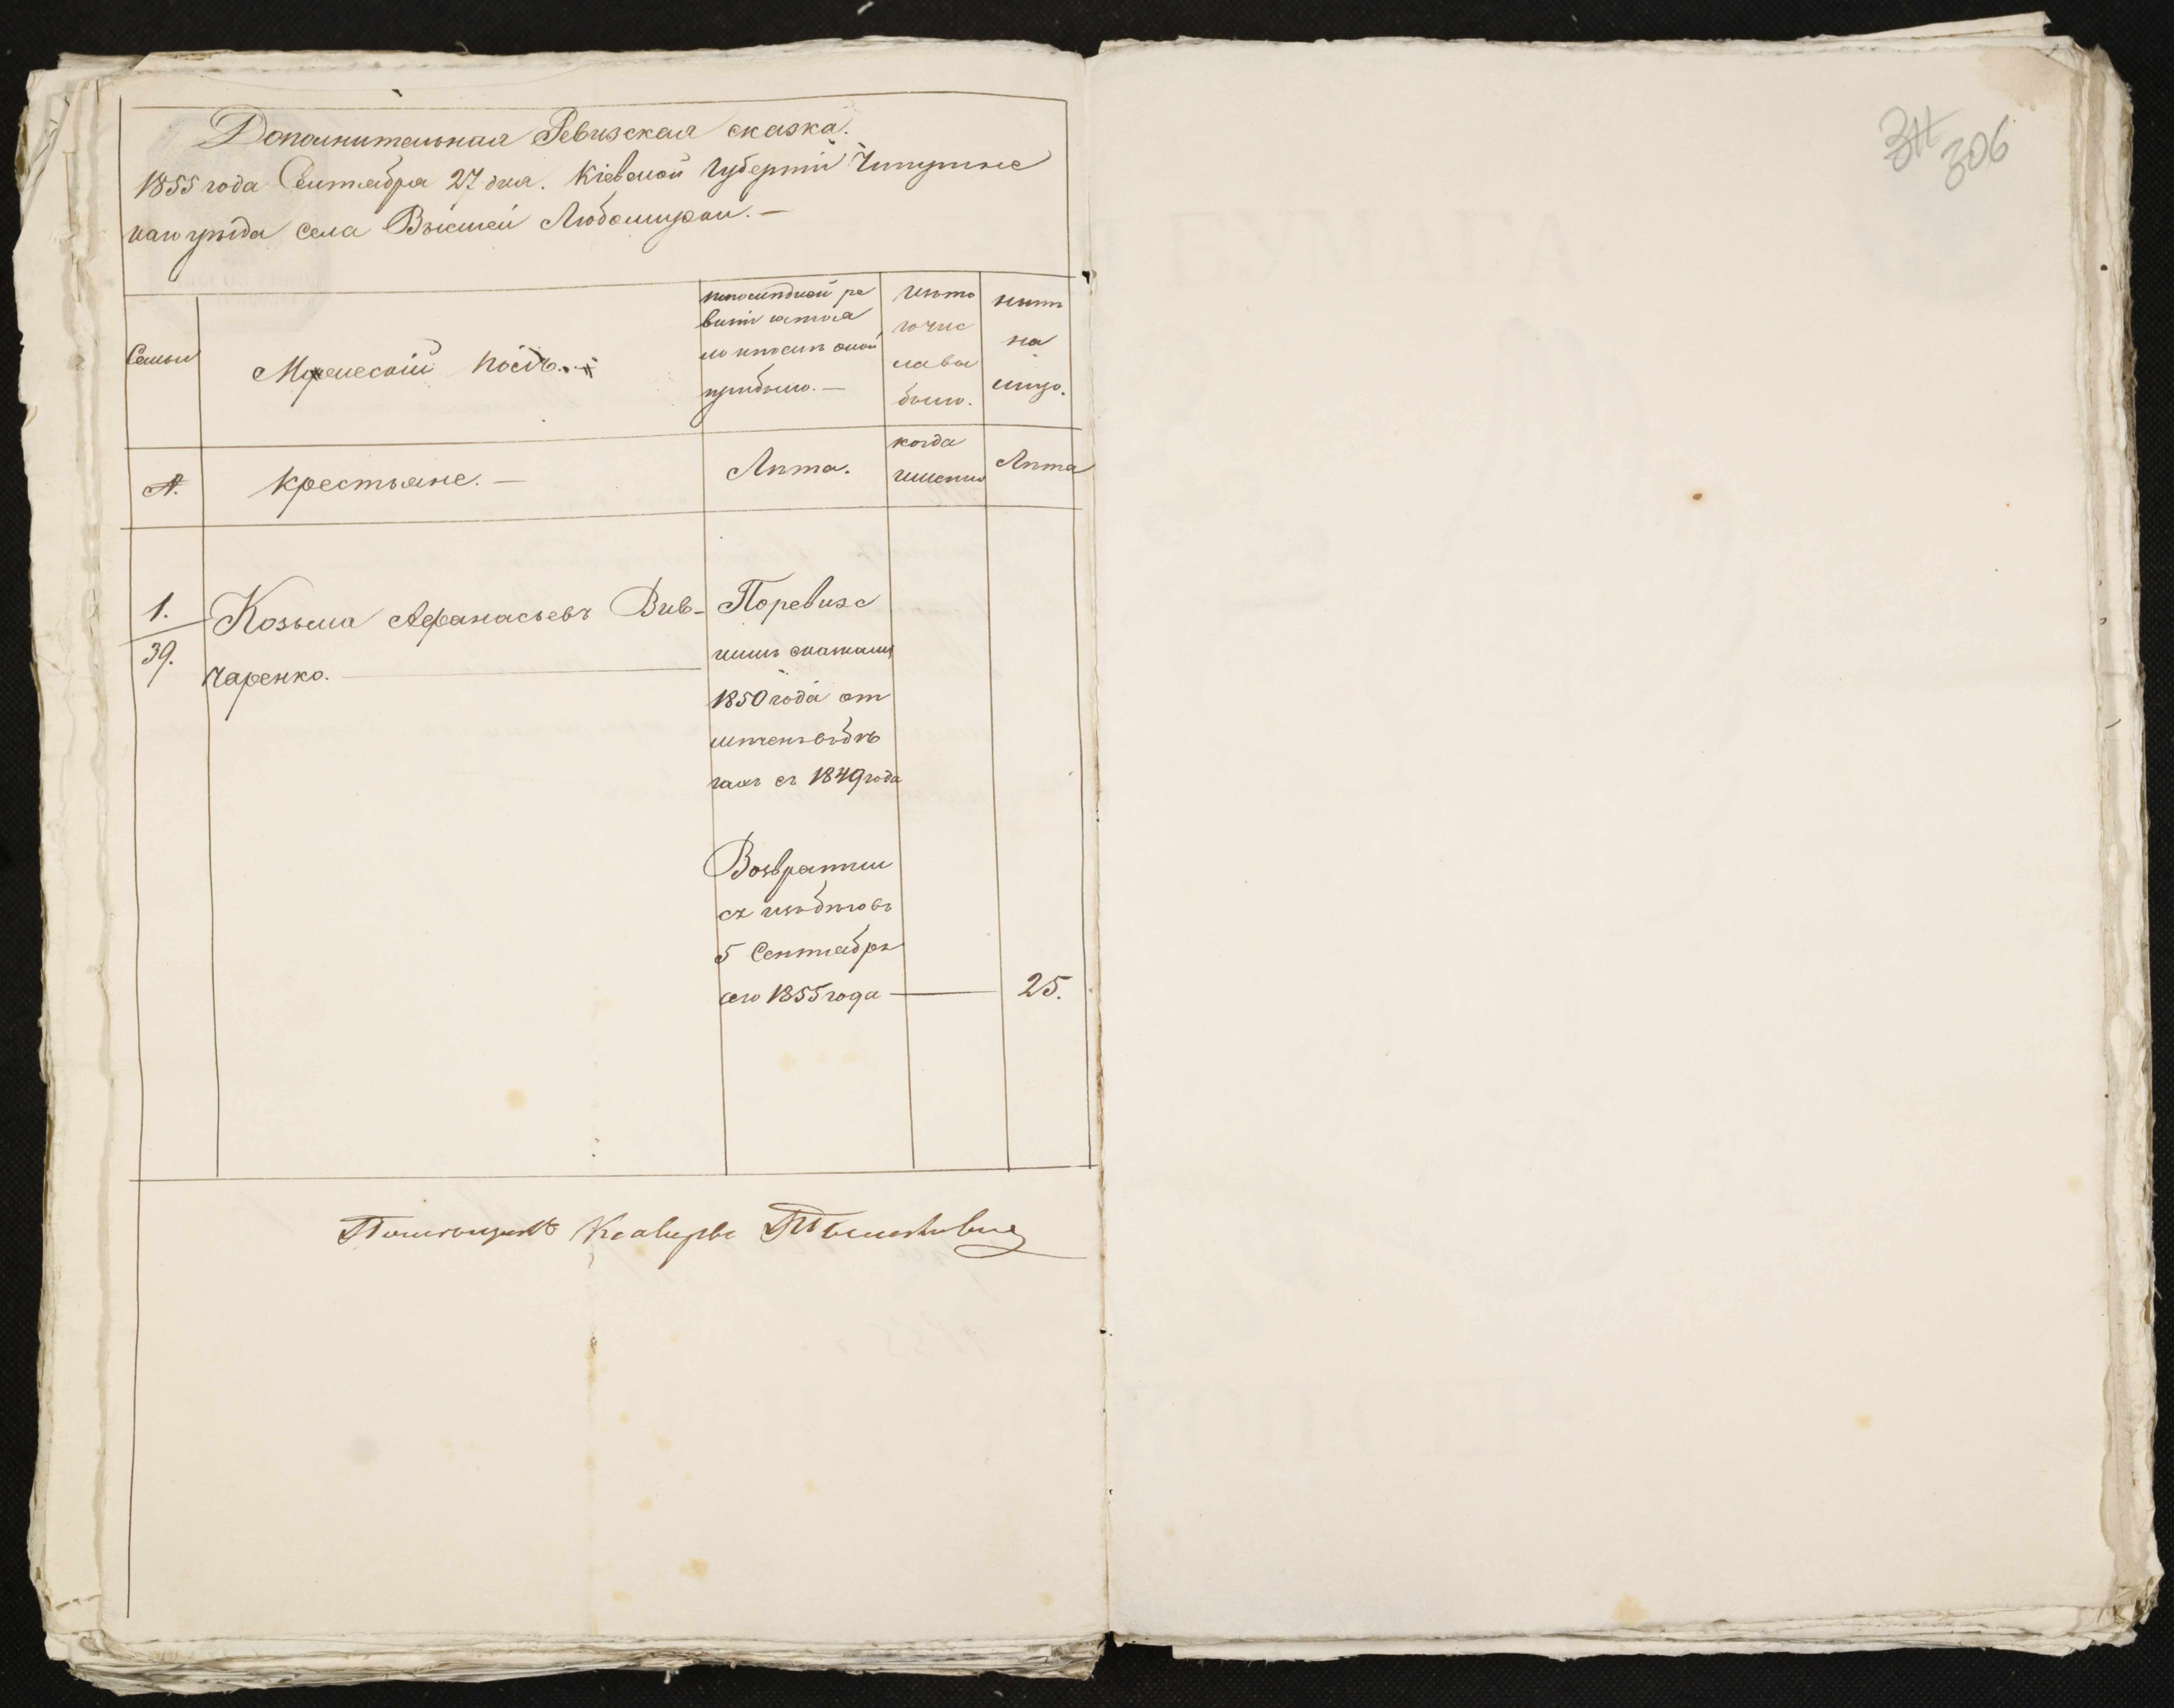 Дополнительная Ревизская сказка.
1855 года Сентября 27 дня. Кіевской Губерніи Чигиринс
каго уѣзда села Высшей
Семьи
Мужескій полъ.
по послѣдней ре
визіи состоя
ло и послѣ оной
прибыло. —
Изъ то
го чис
ла вы
было.
нынѣ
на
лицо.
№.
крестьяне. —
Лѣта.
когда
именно
Лѣта
1.
39.
Козьма Афанасьевъ Вив-
чаренко.
По ревизс
кимъ сказкамъ
1850 года от
мѣченъ въ бѣ
гахъ съ 1849 года
Возвратил
ся изъ бѣговъ
5 Сентября
сего 1855 года — 25.
Помѣщикъ Ксаверъ
306